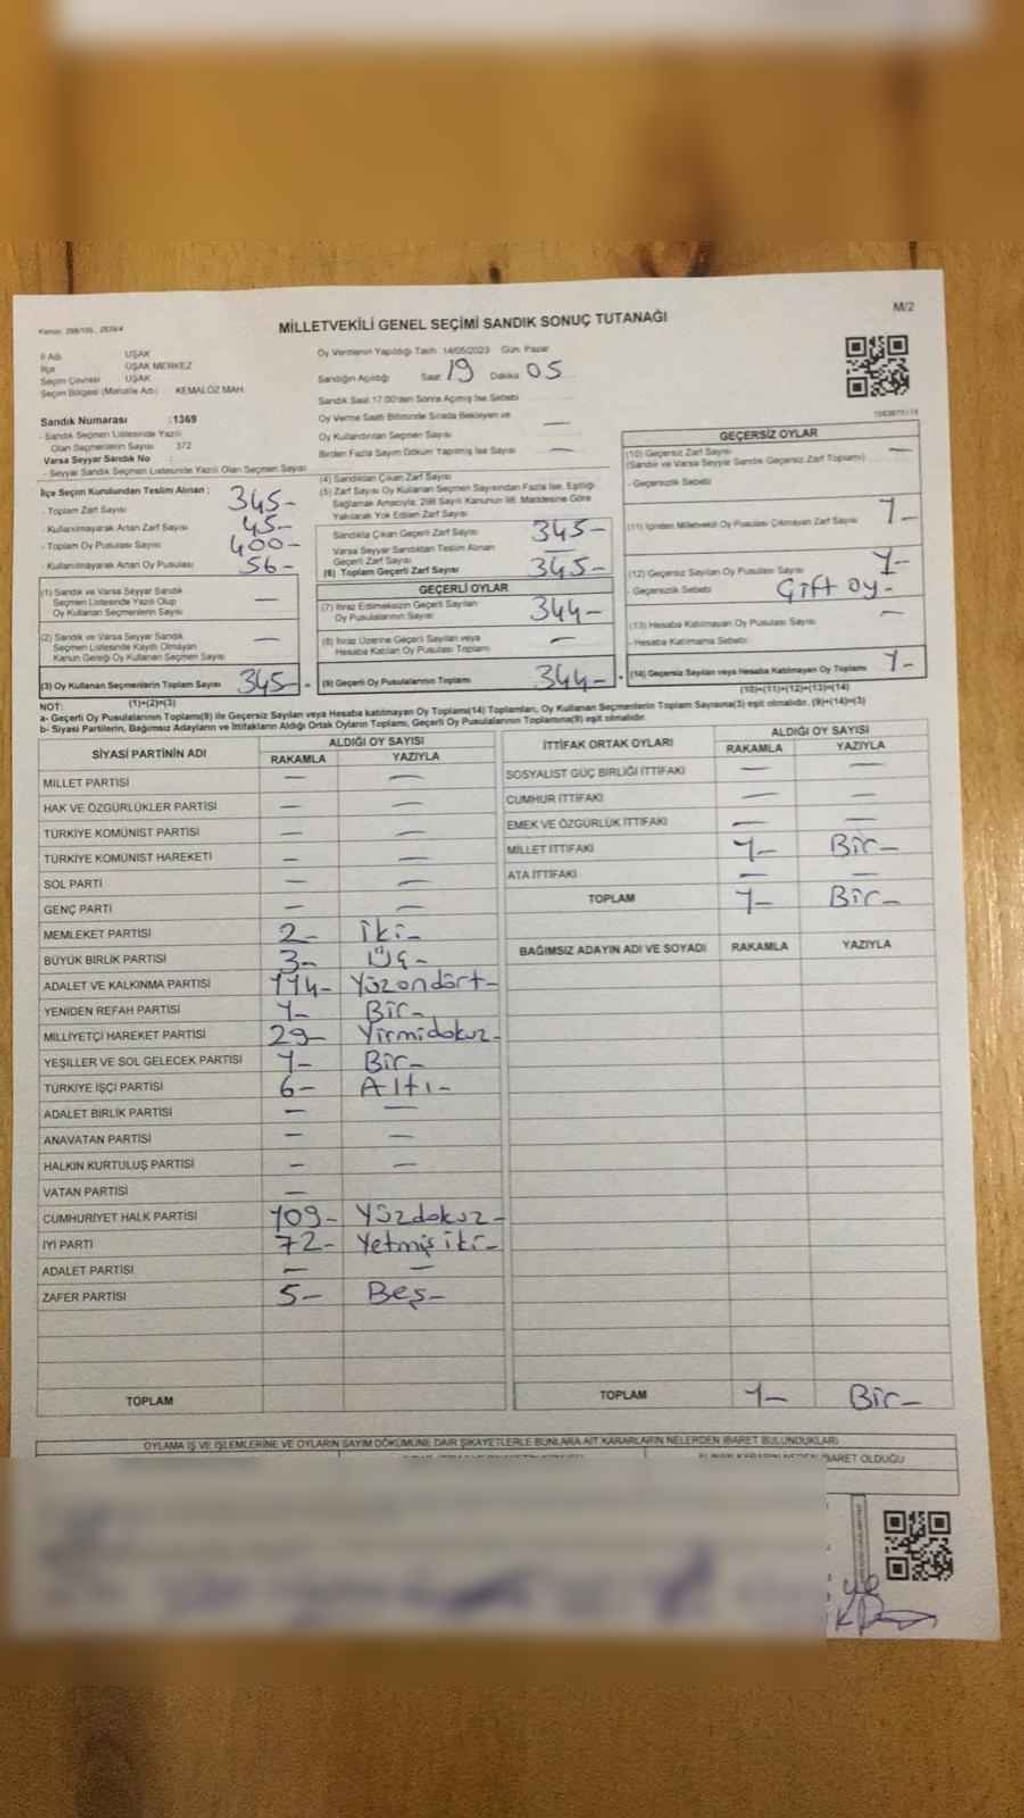 M/2
MİLLETVEKİLİ GENEL SEÇİMİ SANDIK SONUÇ TUTANAĞI
İl Adı : UŞAK
İlçe : UŞAK MERKEZ
Seçim Çevresi : UŞAK
Seçim Bölgesi (Mahalle Adı) : KEMALÖZ MAH.
Oy Vermenin Yapıldığı Tarih : 14/05/2023 Gün: Pazar
Sandığın Açıldığı Saat 19 Dakika 05
Sandık Saat 17.00'den Sonra Açılmış İse Sebebi
Oy Verme Saati Bitiminde Sırada Bekleyen ve
Oy Kullandırılan Seçmen Sayısı —
Birden Fazla Sayım Döküm Yapılmış İse Sayısı —
Sandık Numarası : 1369
- Sandık Seçmen Listesinde Yazılı
Olan Seçmenlerin Sayısı : 372
Varsa Seyyar Sandık No :
- Seyyar Sandık Seçmen Listesinde Yazılı Olan Seçmen Sayısı
İlçe Seçim Kurulundan Teslim Alınan :
- Toplam Zarf Sayısı 345-
- Kullanılmayarak Artan Zarf Sayısı 45-
- Toplam Oy Pusulası Sayısı 400-
- Kullanılmayarak Artan Oy Pusulası 56-
(1) Sandık ve Varsa Seyyar Sandık
Seçmen Listesinde Yazılı Olup
Oy Kullanan Seçmenlerin Sayısı —
(2) Sandık ve Varsa Seyyar Sandık
Seçmen Listesinde Kayıtlı Olmayan
Kanun Gereği Oy Kullanan Seçmen Sayısı —
(3) Oy Kullanan Seçmenlerin Toplam Sayısı 345-
(1)+(2)=(3)
(4) Sandıktan Çıkan Zarf Sayısı
(5) Zarf Sayısı Oy Kullanan Seçmen Sayısından Fazla İse, Eşitliği
Sağlamak Amacıyla, 298 Sayılı Kanunun 98. Maddesine Göre
Yakılarak Yok Edilen Zarf Sayısı
Sandıkta Çıkan Geçerli Zarf Sayısı 345-
Varsa Seyyar Sandıktan Teslim Alınan
Geçerli Zarf Sayısı —
(6) Toplam Geçerli Zarf Sayısı 345-
GEÇERLİ OYLAR
(7) İtiraz Edilmeksizin Geçerli Sayılan
Oy Pusulalarının Sayısı 344-
(8) İtiraz Üzerine Geçerli Sayılan veya
Hesaba Katılan Oy Pusulası Toplamı —
(9) Geçerli Oy Pusulalarının Toplamı 344-
GEÇERSİZ OYLAR
(10) Geçersiz Zarf Sayısı —
(Sandık ve Varsa Seyyar Sandık Geçersiz Zarf Toplamı)
- Geçersizlik Sebebi
(11) İçinden Milletvekili Oy Pusulası Çıkmayan Zarf Sayısı 1-
(12) Geçersiz Sayılan Oy Pusulası Sayısı 1-
- Geçersizlik Sebebi Çift oy-
(13) Hesaba Katılmayan Oy Pusulası Sayısı —
- Hesaba Katılmama Sebebi
(14) Geçersiz Sayılan veya Hesaba Katılmayan Oy Toplamı 1-
(10)+(11)+(12)+(13)=(14)
NOT:
a- Geçerli Oy Pusulalarının Toplamı(9) ile Geçersiz Sayılan veya Hesaba katılmayan Oy Toplamı(14) Toplamları, Oy Kullanan Seçmenlerin Toplam Sayısına(3) eşit olmalıdır. (9)+(14)=(3)
b- Siyasi Partilerin, Bağımsız Adayların ve İttifakların Aldığı Ortak Oyların Toplamı, Geçerli Oy Pusulalarının Toplamına(9) eşit olmalıdır.
SİYASİ PARTİNİN ADI ALDIĞI OY SAYISI
RAKAMLA YAZIYLA
MİLLET PARTİSİ — —
HAK VE ÖZGÜRLÜKLER PARTİSİ — —
TÜRKİYE KOMÜNİST PARTİSİ — —
TÜRKİYE KOMÜNİST HAREKETİ — —
SOL PARTİ — —
GENÇ PARTİ — —
MEMLEKET PARTİSİ 2- İki-
BÜYÜK BİRLİK PARTİSİ 3- Üç-
ADALET VE KALKINMA PARTİSİ 114- Yüzondört-
YENİDEN REFAH PARTİSİ 1- Bir-
MİLLİYETÇİ HAREKET PARTİSİ 29- Yirmidokuz-
YEŞİLLER VE SOL GELECEK PARTİSİ 1- Bir-
TÜRKİYE İŞÇİ PARTİSİ 6- Altı-
ADALET BİRLİK PARTİSİ — —
ANAVATAN PARTİSİ — —
HALKIN KURTULUŞ PARTİSİ — —
VATAN PARTİSİ —
CUMHURİYET HALK PARTİSİ 109- Yüzdokuz-
İYİ PARTİ 72- Yetmişiki-
ADALET PARTİSİ — —
ZAFER PARTİSİ 5- Beş-
TOPLAM
İTTİFAK ORTAK OYLARI ALDIĞI OY SAYISI
RAKAMLA YAZIYLA
SOSYALİST GÜÇ BİRLİĞİ İTTİFAKI — —
CUMHUR İTTİFAKI — —
EMEK VE ÖZGÜRLÜK İTTİFAKI — —
MİLLET İTTİFAKI 1- Bir-
ATA İTTİFAKI — —
TOPLAM 1- Bir-
BAĞIMSIZ ADAYIN ADI VE SOYADI RAKAMLA YAZIYLA
TOPLAM 1- Bir-
OYLAMA İŞ VE İŞLEMLERİNE VE OYLARIN SAYIM DÖKÜMÜNE DAİR ŞİKAYETLERLE BUNLARA AİT KARARLARIN NELERDEN İBARET BULUNDUKLARI
İBARET OLDUĞU